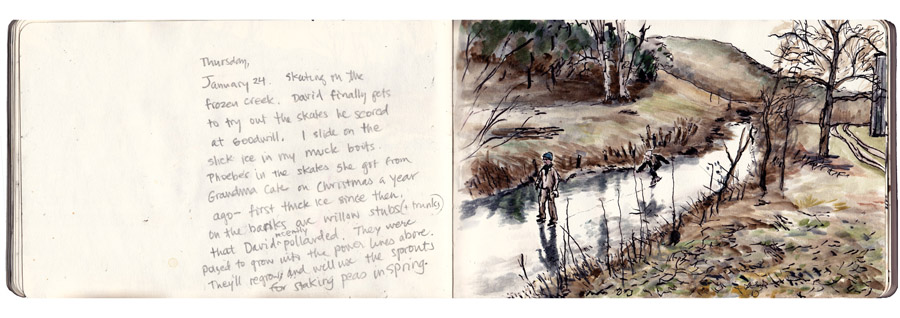 Thursday,
January 24. Skating on the
frozen creek. David finally gets
to try out the skates he scored
at Goodwill. I slide on the
slick ice in my muck boots.
Phoebe's in the skates she got from
Grandma Cate on Christmas a year
ago – first thick ice since then.
On the banks are willow stubs (+ trunks)
that David recently pollarded. They were
poised to grow into the power lines above.
They'll regrow and we'll use the sprouts
for staking peas in spring.